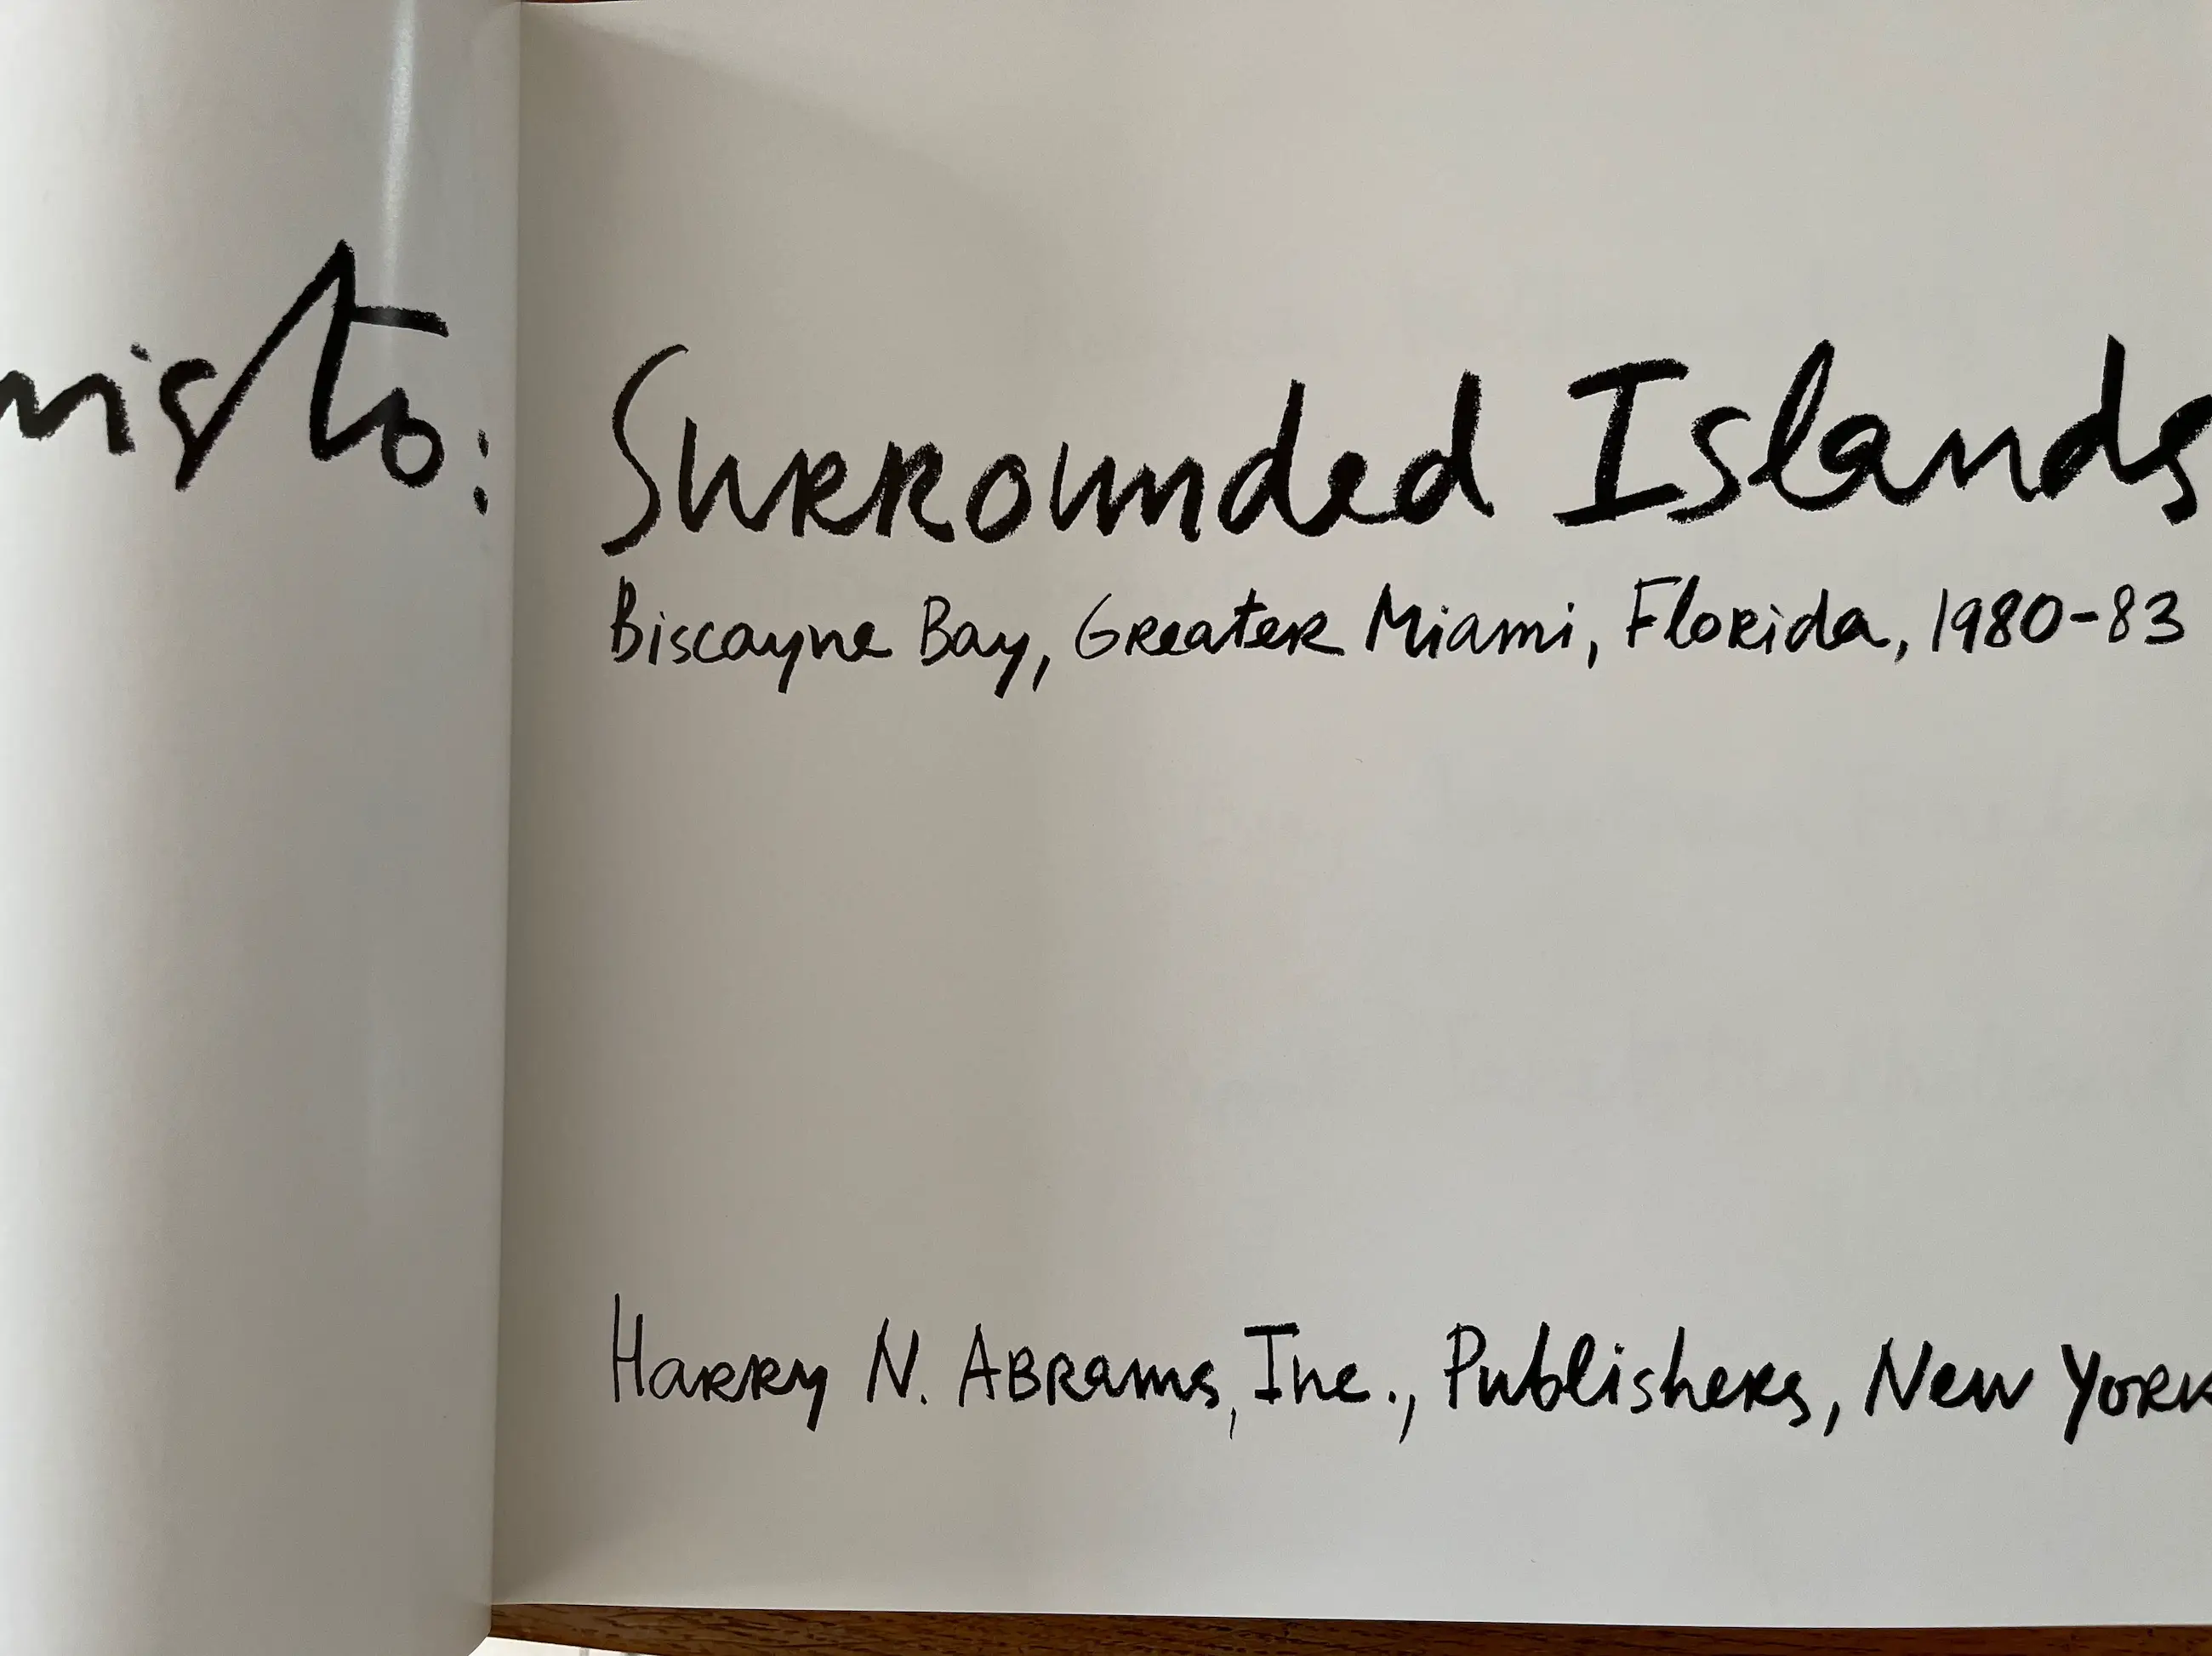 risto:
Surrounded Islands
Biscayne Bay, Greater Miami, Florida, 1980-83
Harry N. Abrams, Inc., Publishers, New York